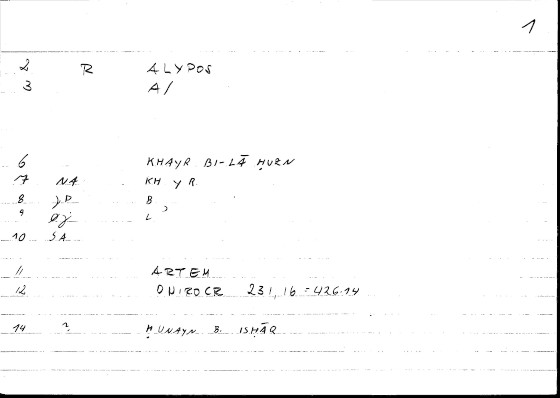 1
2 R ALYPOS
3 A/
6 KHAYR BI-LĀ ḤUZN
7 NA KH Y R
8 JD B
9 aj L ʾ
10 SA
11 ARTEM
12 ONIROCR 231,16 = 426.14
14 ? ḤUNAYN B. ISḤĀQ